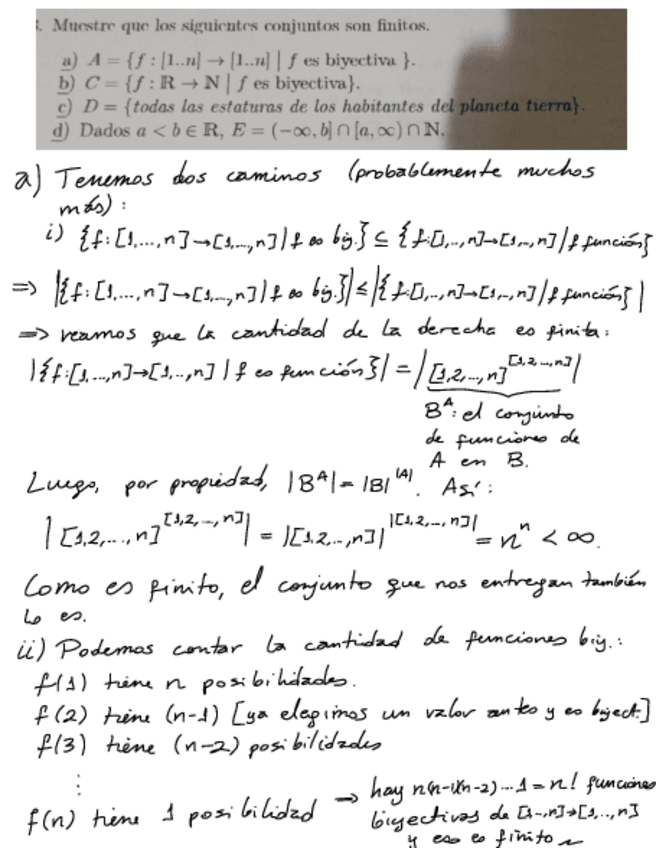 Muestre que los siguientes conjuntos son finitos.
a) A = {f : [1..n] → [1..n] | f es biyectiva }.
b) C = {f : ℝ → ℕ | f es biyectiva}.
c) D = {todas las estaturas de los habitantes del planeta tierra}.
d) Dados a < b ∈ ℝ, E = (−∞, b] ∩ [a, ∞) ∩ ℕ.
a) Tenemos dos caminos (probablemente muchos
más):
i) {f: [1,...,n]→[1,...,n] | f es biy.} ⊆ {f:[1,..,n]→[1,..,n] / f función}
⇒ |{f: [1,...,n]→[1,...,n] | f es biy.}| ≤ |{f:[1,..,n]→[1,..,n] / f función}|
⇒ veamos que la cantidad de la derecha es finita:
|{f:[1,...,n]→[1,..,n] | f es función}| = |[1,2,...,n]^[1,2,...,n]|
B^A: el conjunto
de funciones de
A en B.
Luego, por propiedad, |B^A| = |B|^|A|. Así:
|[1,2,...,n]^[1,2,...,n]| = |[1,2,...,n]|^|[1,2,...,n]| = n^n < ∞.
Como es finito, el conjunto que nos entregan también
lo es.
ii) Podemos contar la cantidad de funciones biy.:
f(1) tiene n posibilidades.
f(2) tiene (n-1) [ya elegimos un valor antes y es biyect.]
f(3) tiene (n-2) posibilidades
⋮
f(n) tiene 1 posibilidad ⇒ hay n(n-1)(n-2)...1 = n! funciones
biyectivas de [1,..,n]→[1,..,n]
y eso es finito